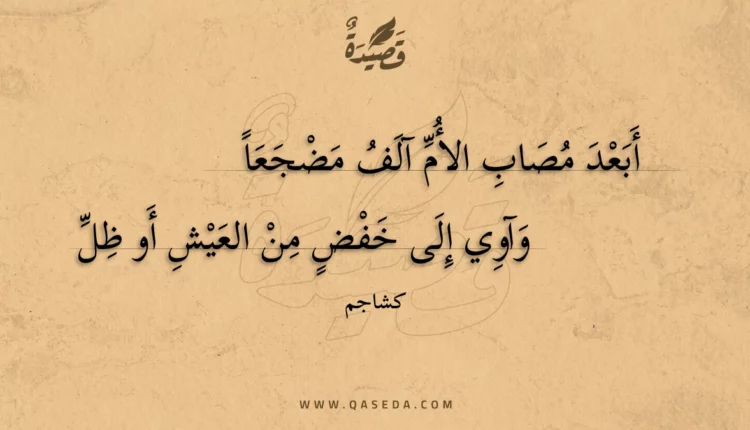 قَصِيْدَةٌ
أَبَعْدَ مُصَابِ الأُمِّ آلَفُ مَضْجَعَاً
وَآوِي إِلَى خَفْضٍ مِنْ العَيْشِ أَو ظِلِّ
كشاجم
WWW.QASEDA.COM